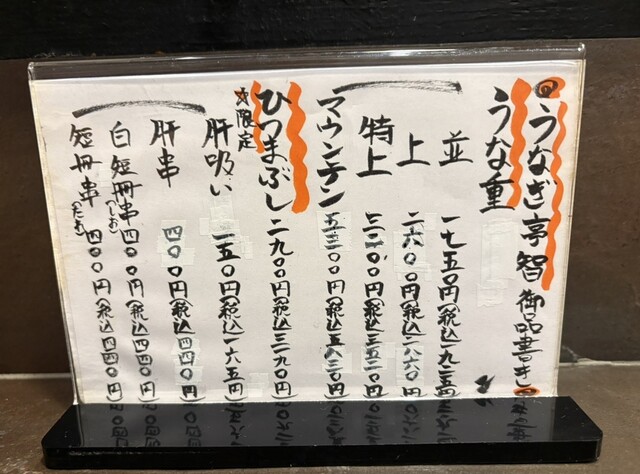 うなぎ亭智 御品書き
うな重
並 一七五〇円(税込一九二五円)
上 二六〇〇円(税込二八六〇円)
特上 三二〇〇円(税込三五二〇円)
マウンテン 五三〇〇円(税込五八三〇円)
ひつまぶし 二九〇〇円(税込三一九〇円)
限定
肝吸い 一五〇円(税込一六五円)
肝串 四〇〇円(税込四四〇円)
白短冊串(しお) 四〇〇円(税込四四〇円)
短冊串(たれ) 四〇〇円(税込四四〇円)